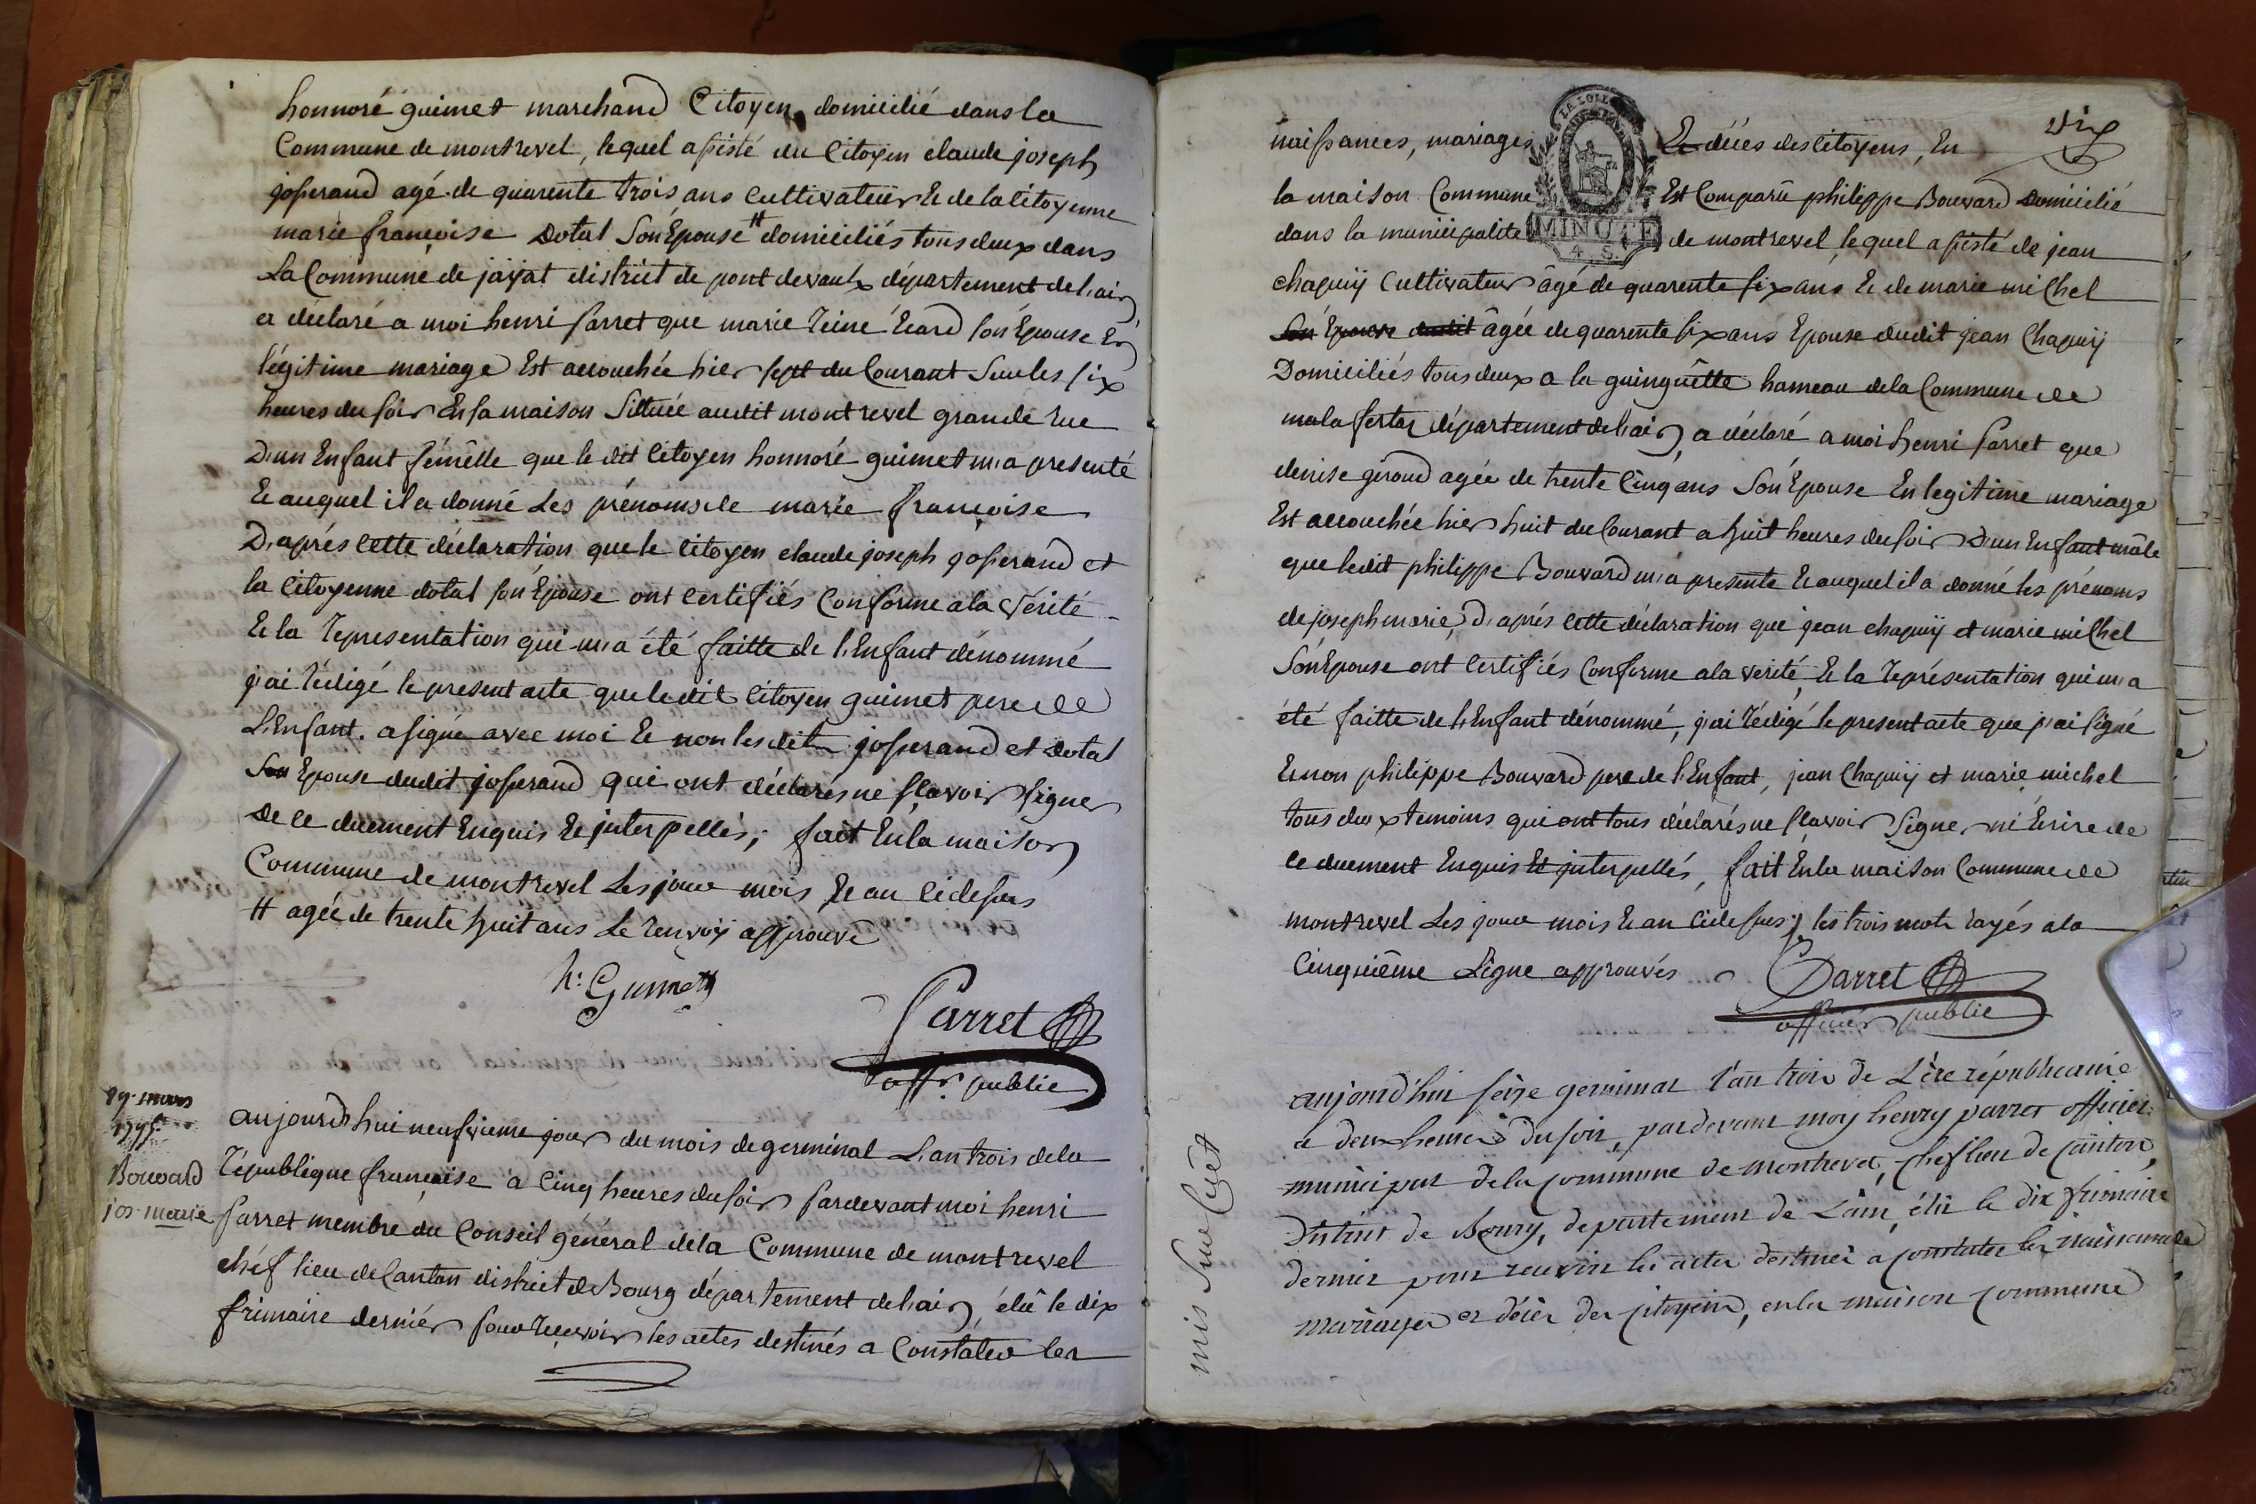 honnoré guimet marchand Citoyen domicilié dans la
Commune de montrevel, lequel assisté du Citoyen claude joseph
josserand agé de quarente trois ans cultivateur & de la Citoyenne
marie françoise Dotal Son Epouse # domiciliés tous deux dans
La Commune de jayat district de pont devaux département de l'ain,
a déclaré a moi henri parret que marie reine Ecard son Epouse En
légitime mariage Est accouchée hier sept du Courant Sur les six
heures du soir En sa maison Sittuée audit montrevel grande rue
D'un Enfant fémelle que le dit Citoyen honnoré guimet m'a presenté
& auquel il a donné Les prénoms de marie françoise
D'aprés cette déclaration que le Citoyen claude joseph josserand et
la Citoyenne dotal son Epouse ont certifiés Conforme a la vérité
& la représentation qui m'a été faitte de l'Enfant dénommé
j'ai rédigé le present acte que ledit Citoyen guimet pere de
L'Enfant a signé avec moi & non lesdits josserand et Dotal
Son Epouse dudit josserand qui ont déclarés ne sçavoir signer
De ce duement Enquis & interpellés, fait En la maison
Commune de montrevel Les jour mois & an cidessus
# agée de trente huit ans Le renvoÿ approuvé
h: Guimet
Parret
offr. public
29 mars
1795
Bouvard
jos-marie
aujourd'hui neufvieme jour du mois de germinal L'an trois de la
république française à Cinq heures du soir pardevant moi henri
parret membre du Conseil général de la Commune de montrevel
chéf lieu de Canton district de Bourg département de l'ain, élû le dix
frimaire dernier pour recevoir les actes destinés a Constater les
dix
naissances, mariages & décés des Citoyens, En
LA LOI LE
MINUTE
4. S.
la maison Commune Est Comparû philippe Bouvard Domicilié
dans la municipalité de montrevel, lequel assisté de jean
chapuÿ Cultivateur âgé de quarente six ans & de marie michel
Son Epouse dudit âgée de quarente six ans Epouse dudit jean Chapuÿ
Domiciliés tous deux a la guinguêtte hameau de la Commune de
malafertaz département de l'ain, a déclaré a moi henri parret que
denise giroud agée de trente Cinq ans Son Epouse En legitime mariage
Est accouchée hier huit du Courant a huit heures du soir D'un Enfant mâle
que ledit philippe Bouvard m'a presenté & auquel il a donné les prénoms
de joseph marie, D'aprés cette déclaration que jean chapuÿ et marie michel
Son Epouse ont certifiés Conforme a la verité, & la représentation qui m'a
été faitte de l'Enfant dénommé, j'ai rédigé le present acte que j'ai signé
& non philippe Bouvard pere de l'Enfant, jean Chapuÿ et marie michel
tous deux temoins qui ont tous déclarés ne sçavoir Signer ni Ecrire de
ce duement Enquis Et interpellés, fait En la maison Commune de
montrevel Les jour mois & an cidessus, les trois mots rayés a la
Cinquiême Ligne approuvés
Parret
officier public
mis Sur Cuët
aujourd'hui seize germinal l'an trois de L'ère républicaine
a deux heures du soir, pardevant moy henry parret officier
municipal de la commune de montrevel, chef lieu de canton,
District de Bourg, departement de L'ain, élû le dix frimaire
dernier pour recevoir les actes destinés a constater les naissances
mariages et décès des citoyens, en la maison commune